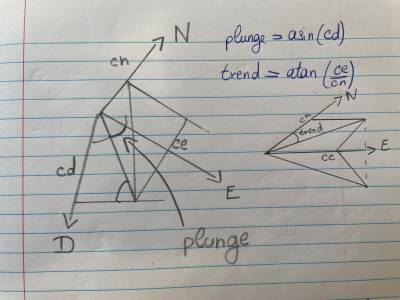 N
cn
plunge = asin(cd)
trend = atan(ce/cn)
N
cn
trend
ce
E
ce
cd
E
D
plunge